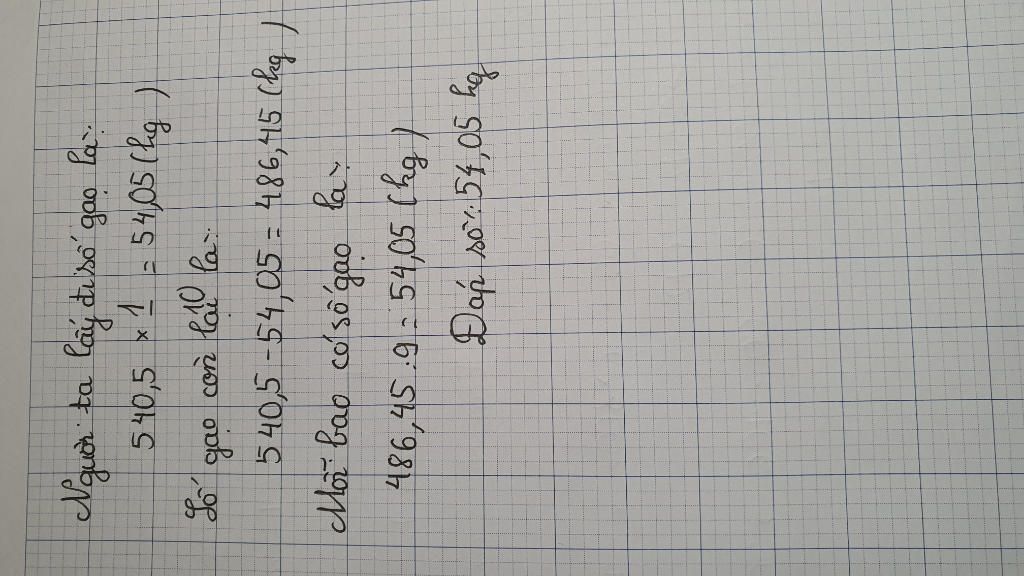 Người ta lấy đi số gạo là:
540,5 × 1/10 = 54,05 (kg)
Số gạo còn lại là:
540,5 - 54,05 = 486,45 (kg)
Mỗi bao có số gạo là:
486,45 : 9 = 54,05 (kg)
Đáp số: 54,05 kg